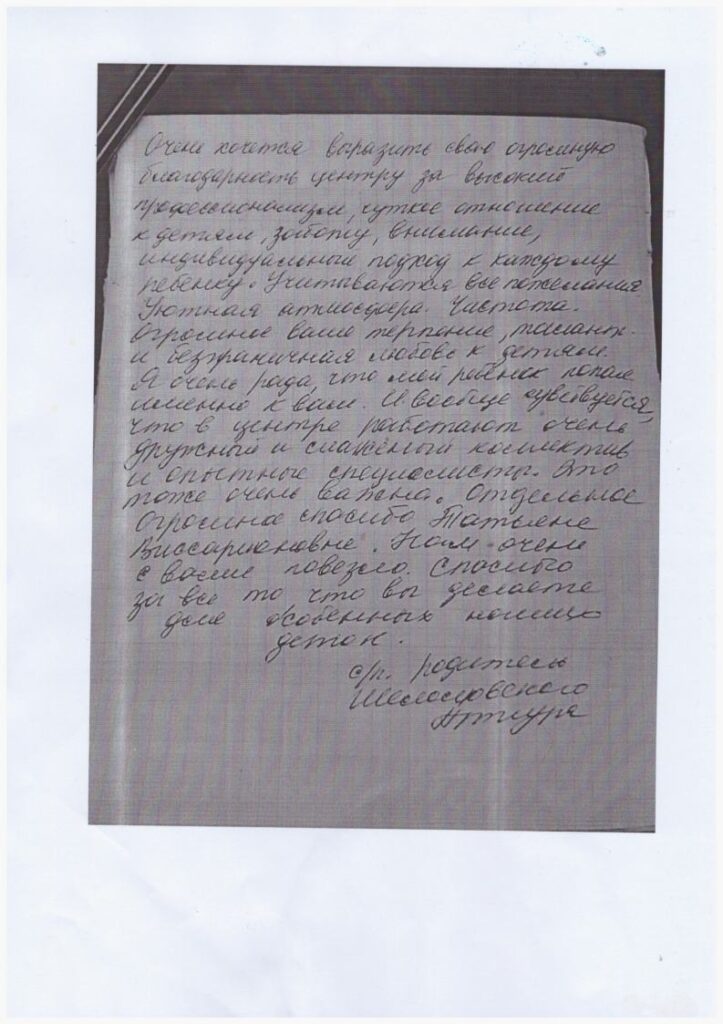 Очень хочется выразить свою огромную
благодарность центру за высокий
профессионализм, чуткое отношение
к детям, заботу, внимание,
индивидуальный подход к каждому
ребенку. Учитываются все пожелания
Уютная атмосфера. Чистота.
Огромное ваше терпение, талант
и безграничная любовь к детям.
Я очень рада, что мой ребенок попал
именно к вам. И вообще чувствуется,
что в центре работают очень
дружный и слаженый коллектив
и опытные специалисты. Это
тоже очень важна. Отдельное
Огромное спасибо Татьяне
Виссарионовне. Нам очень
с вами повезло. Спасибо
за все то что вы делаете
для особенных наших
деток.
с/п. родитель
Артура